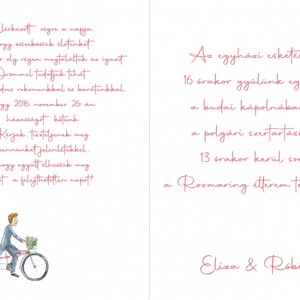 lérkezett végre a napja,
ogy összekössük életünket
oly régen megtaláltuk az igazit.
Örömmel tudatjuk tehát
rokonainkkal és barátunkkal,
ogy 2016. november 26-án
házasságot kötünk.
Kérjük, tiszteljenek meg
bennünket jelenlétükkel,
ogy együtt élhessük meg
a felejthetetlen napot!
Az egyházi esketés
16 órakor gyűlünk eg
a budai kápolnába
a polgári szertartás
13 órakor kerül so
a Rozmaring étterem te
Eliza & Róbe